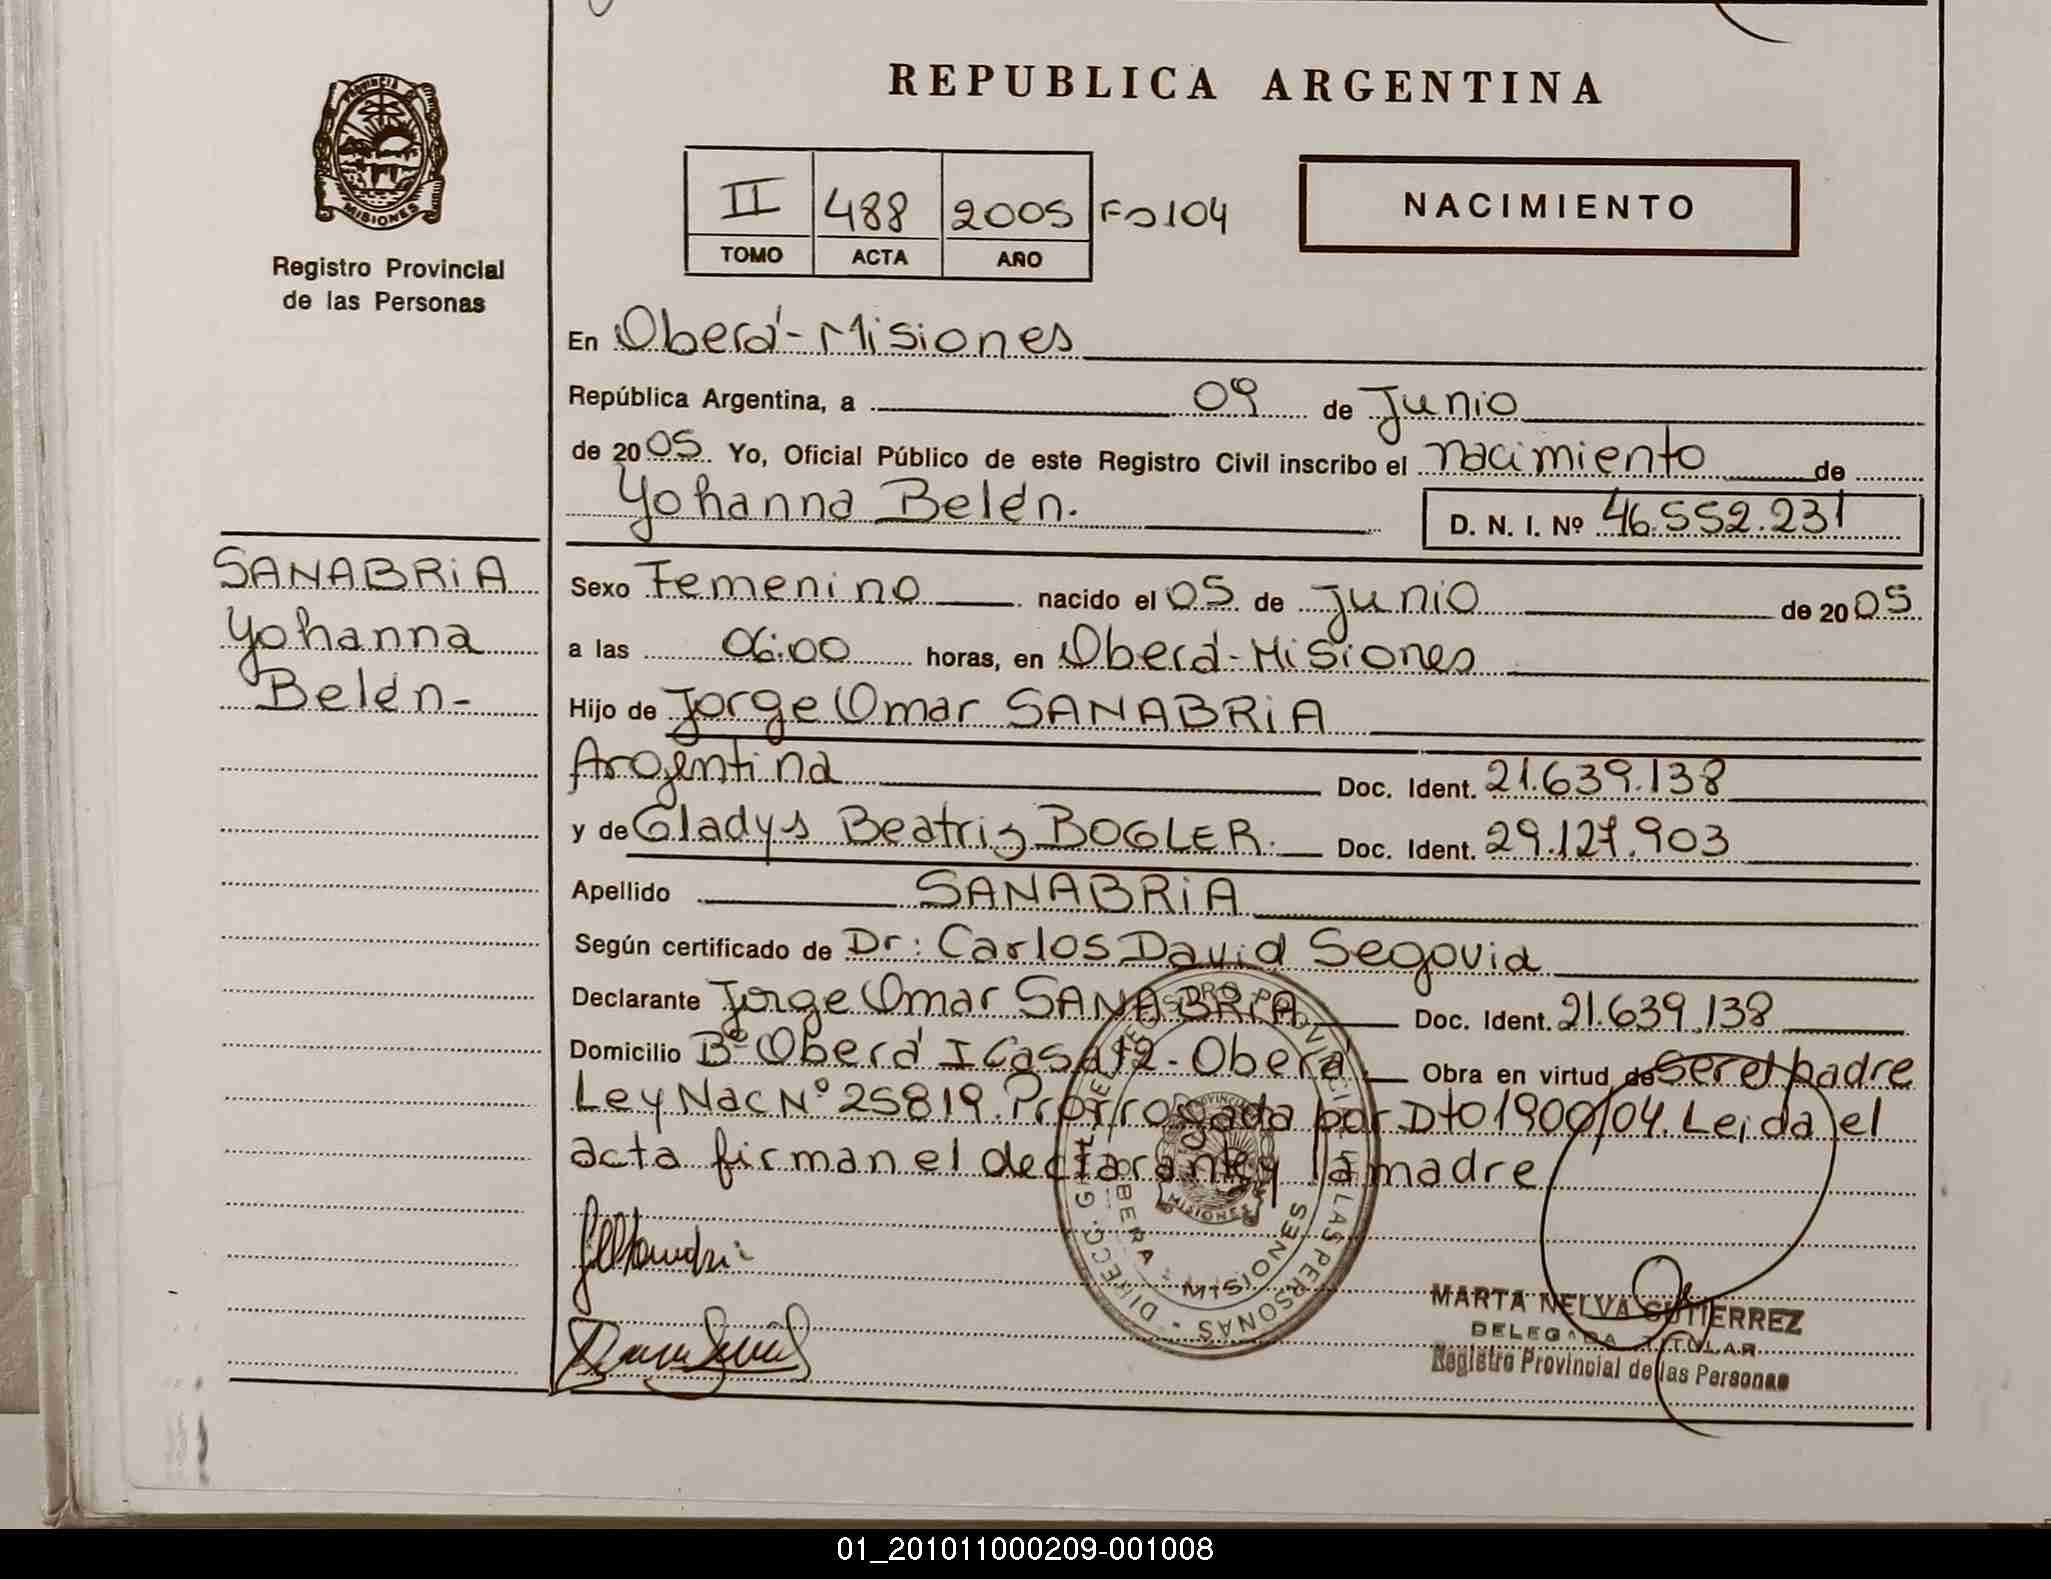 PROVINCIA DE
MISIONES
Registro Provincial
de las Personas
SANABRiA
Yohanna
Belén-
REPUBLICA ARGENTINA
II 488 2005 Fº104
TOMO ACTA AÑO
NACIMIENTO
En Oberá-Misiones
República Argentina, a 09 de Junio
de 2005 Yo, Oficial Público de este Registro Civil inscribo el nacimiento de
Yohanna Belén.
D. N. I. Nº 46.552.231
Sexo Femenino nacido el 05 de Junio de 2005
a las 06:00 horas, en Oberá-Misiones
Hijo de Jorge Omar SANABRiA
Argentina Doc. Ident. 21.639.138
y de Gladys Beatriz BOGLER. Doc. Ident. 29.127.903
Apellido SANABRiA
Según certificado de Dr: Carlos David Segovia
Declarante Jorge Omar SANABRiA Doc. Ident. 21.639.138
Domicilio Bº Oberá I Casa 12-Oberá Obra en virtud de Ser el padre
Ley Nac Nº 25819. Prorrogada por Dto 1900/04. Leida el
acta firman el declarante y la madre
MARTA NELVA GUTIERREZ
DELEGADA TITULAR
Registro Provincial de las Personas
01_201011000209-001008